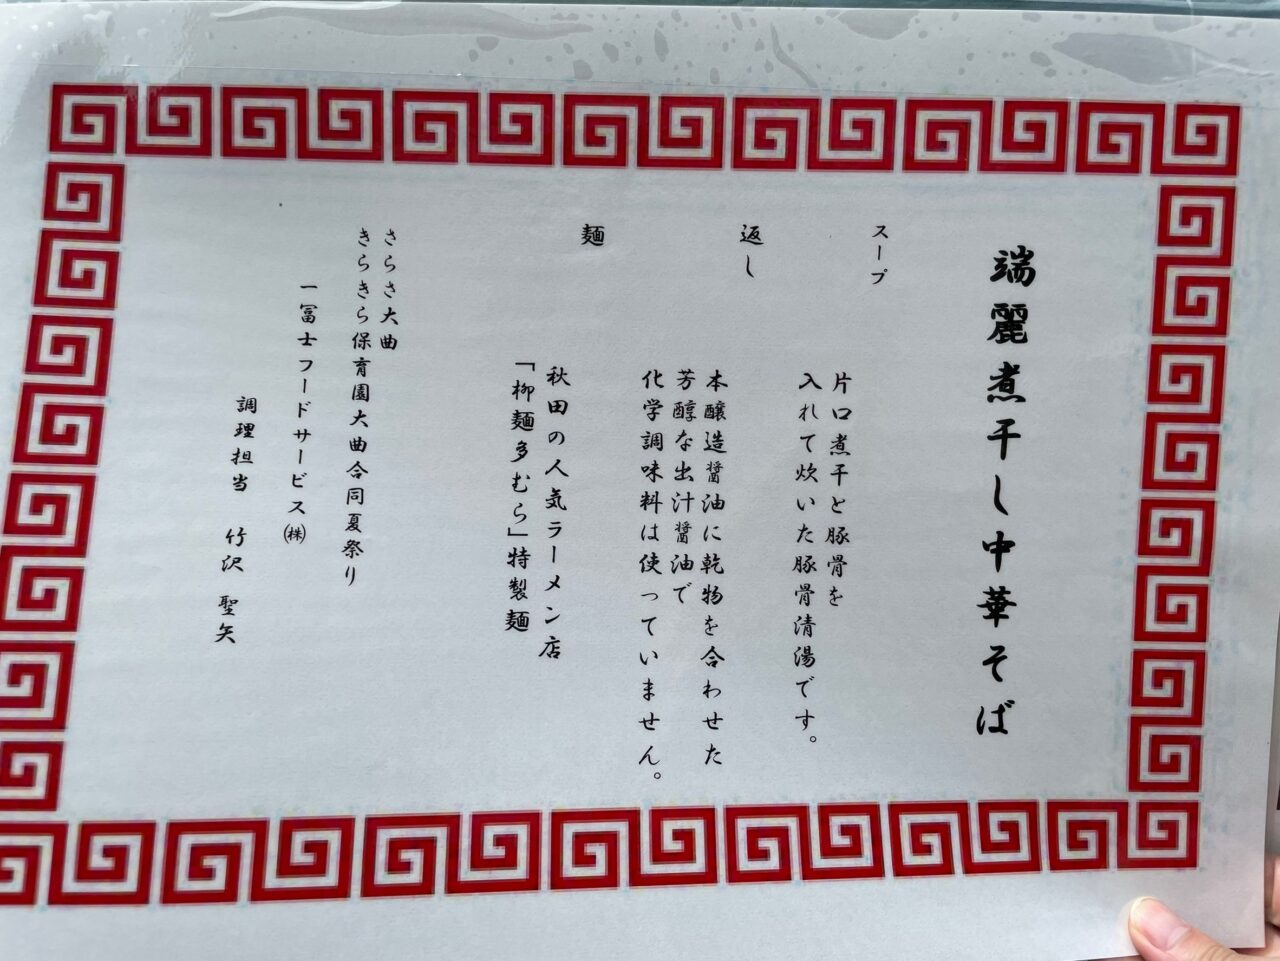 端麗煮干し中華そば
スープ
片口煮干と豚骨を
入れて炊いた豚骨清湯です。
返し
本醸造醤油に乾物を合わせた
芳醇な出汁醤油で
化学調味料は使っていません。
麺
秋田の人気ラーメン店
「柳麺多むら」特製麺
さらさ大曲
きらきら保育園大曲合同夏祭り
一冨士フードサービス㈱
調理担当　竹沢　聖矢